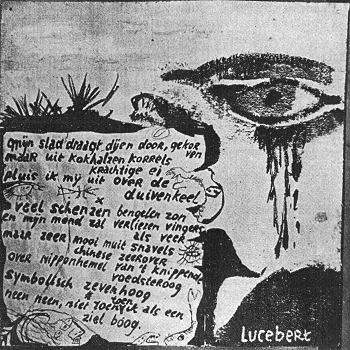 mijn slad draagt dijen door, gekorven
maar uit kokhalzen korrels
krachtige ei
pluis ik mij uit over de
duivenkeel
veel schenzen bengelen zon
en mijn mond zal verliezen vingers
als veer
maar zeer mooi muit snavels
chinese zeerover
over nipponhemel van 't knippend
voedsteroog
symbolisch zeven hoog
& zoek
neen neen, niet zoenuit als een
ziel boog.
Lucebert